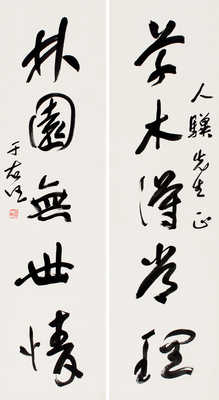 人先生正
草木得常理
林園無世情
于右任